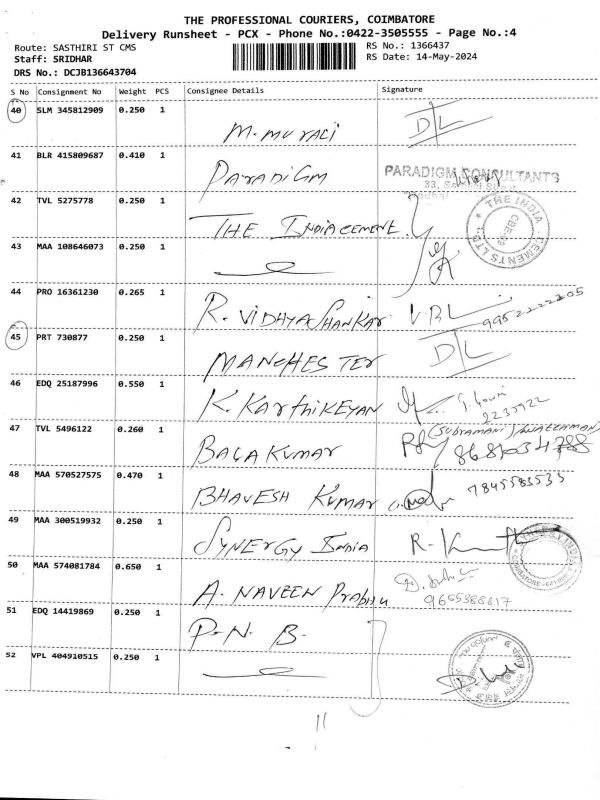 THE PROFESSIONAL COURIERS, COIMBATORE
Delivery Runsheet - PCX - Phone No.:0422-3505555 - Page No.:4
Route: SASTHIRI ST CMS
RS No.: 1366437
Staff: SRIDHAR
RS Date: 14-May-2024
DRS No.: DCJB136643704
S No Consignment No Weight PCS Consignee Details Signature
40 SLM 345812909 0.250 1
M. MURALI D/L
41 BLR 415809687 0.410 1
PARADIGM PARADIGM CONSULTANTS
33,
42 TVL 5275778 0.250 1
THE INDIA CEMENT THE INDIA CEMENTS LTD CBE-9
43 MAA 108646073 0.250 1
44 PRO 16361230 0.265 1
R. VIDHYASHANKAR V.B.L 9952222205
45 PRT 730877 0.250 1
MANCHESTER D/L
46 EDQ 25187996 0.550 1
K. KARTHIKEYAN
2235922
47 TVL 5496122 0.260 1
BALAKUMAR (SUBRAMANI)
48 MAA 570527575 0.470 1
BHAVESH KUMAR 7845583535
49 MAA 300519932 0.250 1
SYNERGY INDIA
50 MAA 574081784 0.650 1
A. NAVEEN Prabhu 9655388817
51 EDQ 14419869 0.250 1
P.N.B.
52 VPL 404910515 0.250 1